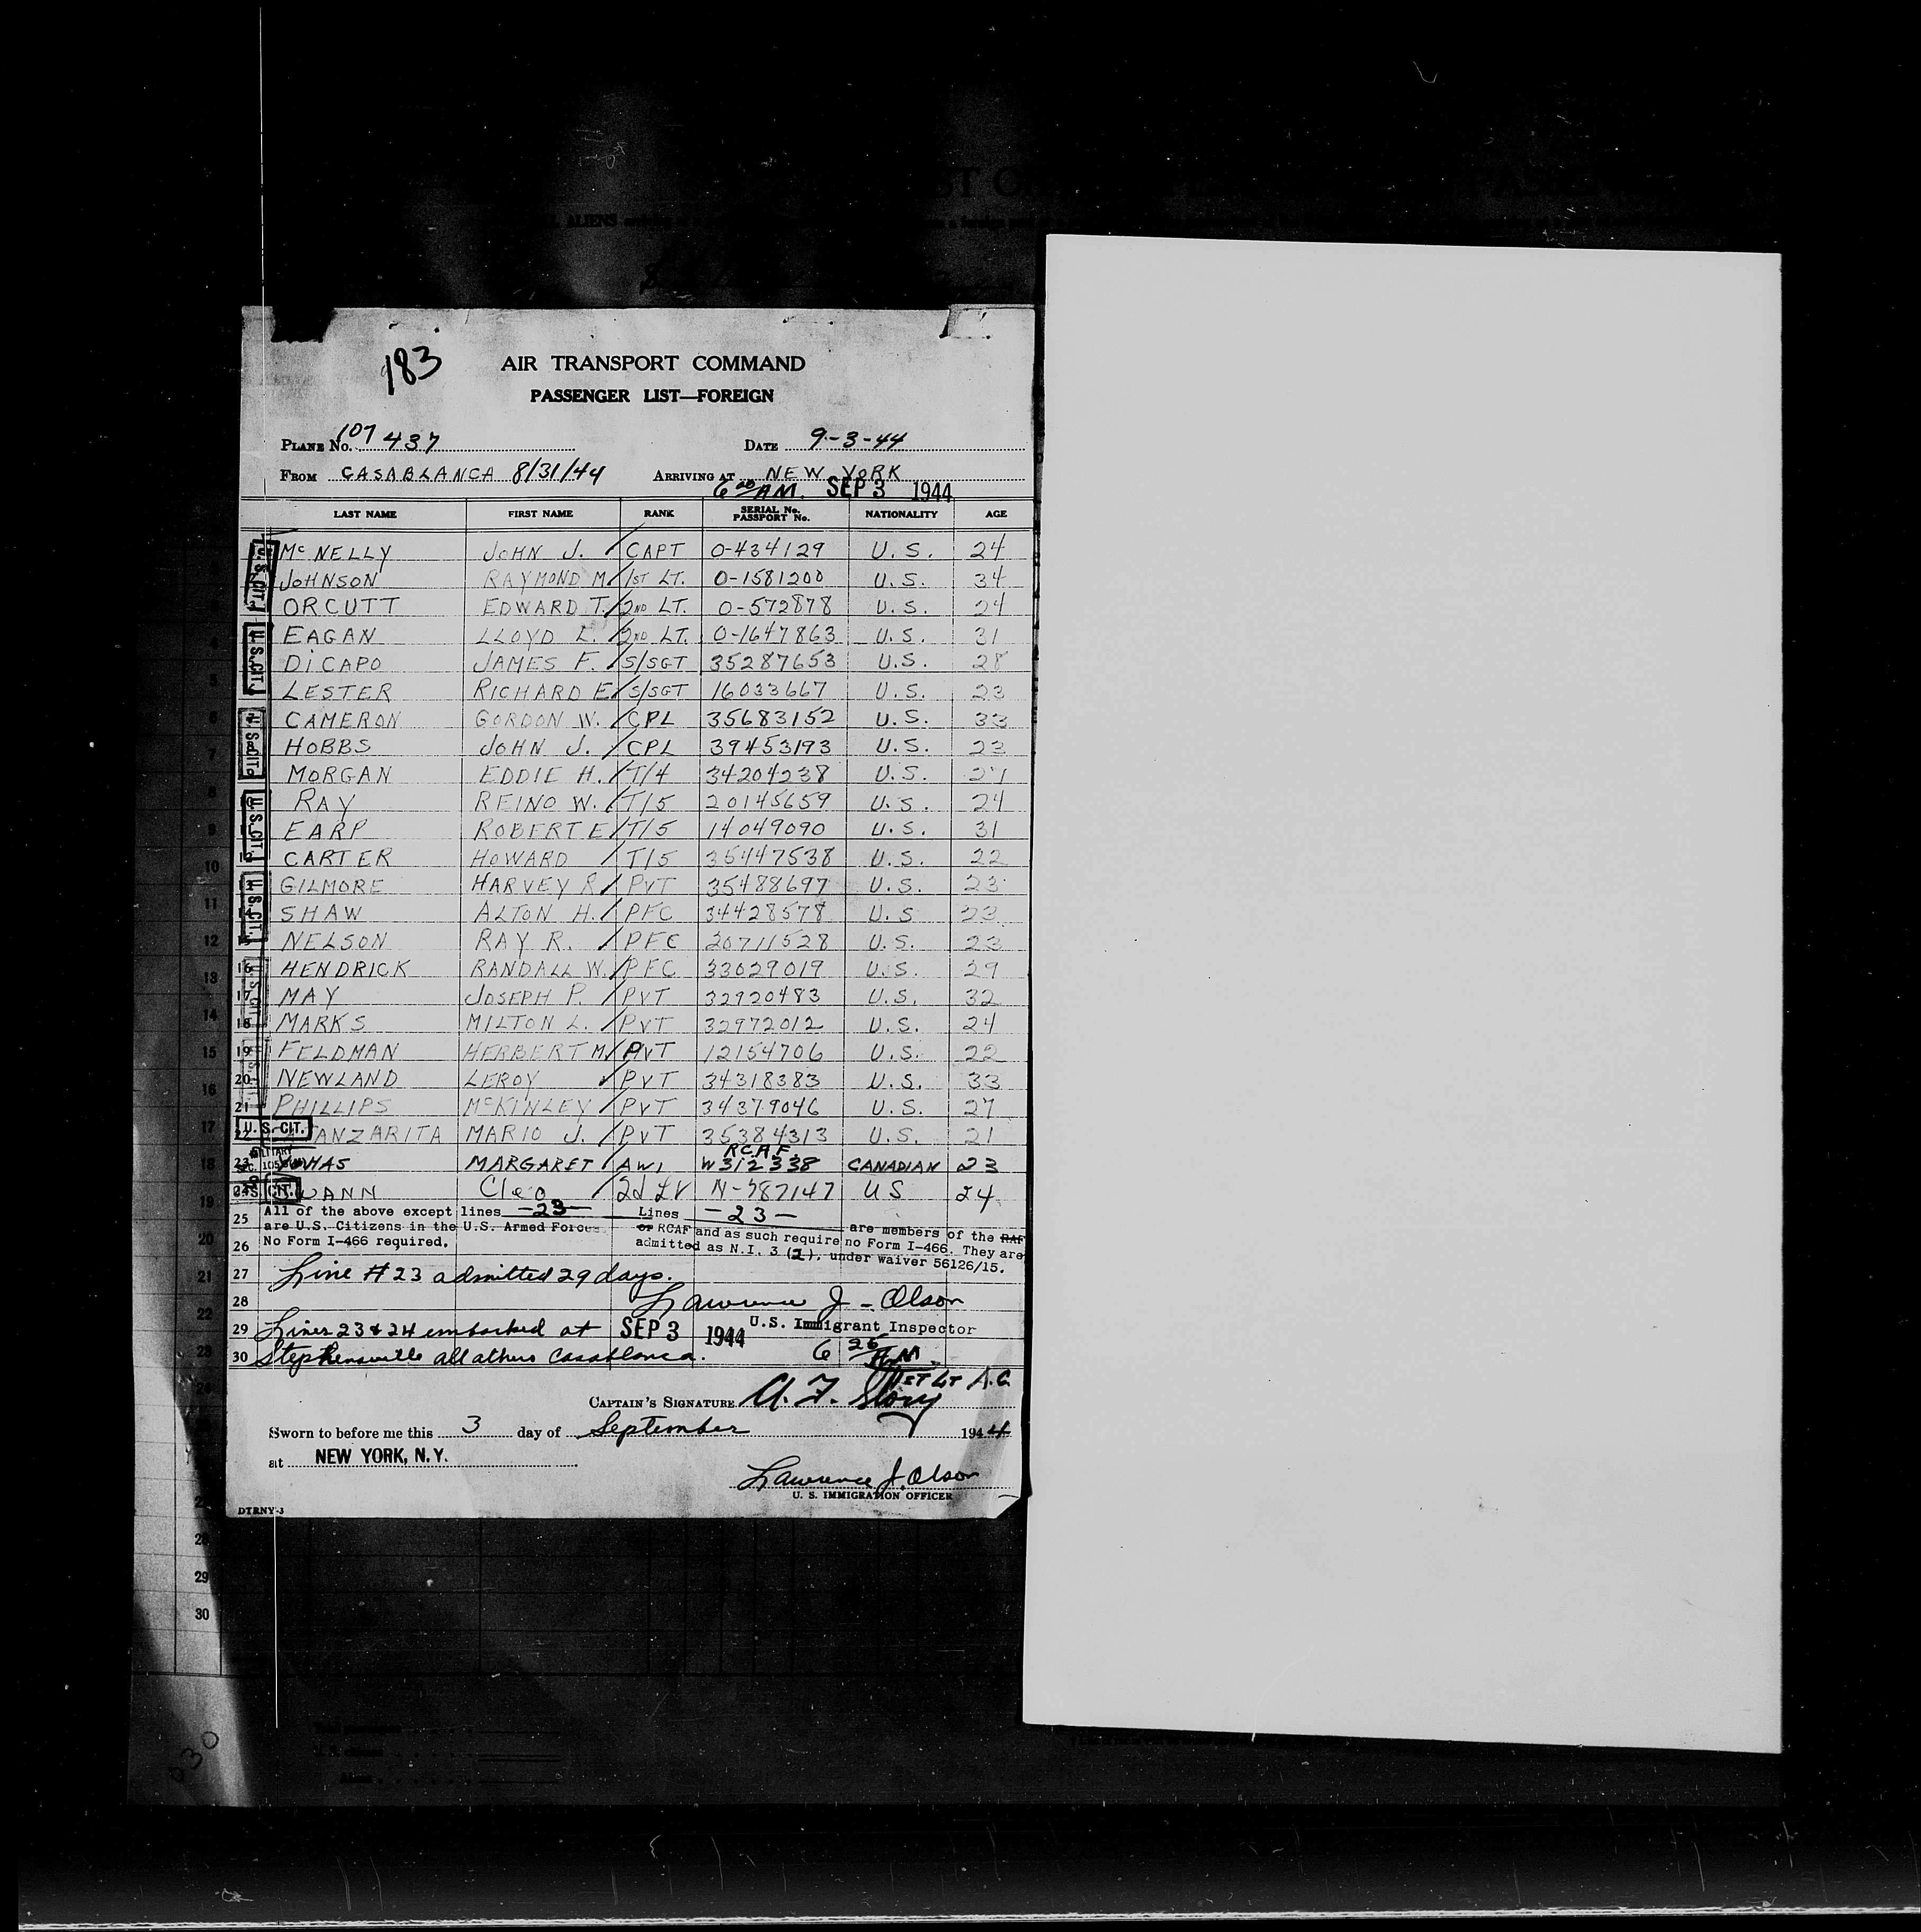 183
AIR TRANSPORT COMMAND
PASSENGER LIST—FOREIGN
PLANE No. 107437 DATE 9-3-44
FROM CASABLANCA 8/31/44 ARRIVING AT NEW YORK
6 00 AM. SEP 3 1944
LAST NAME FIRST NAME RANK SERIAL No. PASSPORT No. NATIONALITY AGE
McNELLY JOHN J. CAPT 0-434129 U.S. 24
JOHNSON RAYMOND M. 1ST LT. 0-1581200 U.S. 34
ORCUTT EDWARD T. 2ND LT. 0-572878 U.S. 24
EAGAN LLOYD L. 2ND LT. 0-1647863 U.S. 31
DiCAPO JAMES F. S/SGT 35287653 U.S. 28
LESTER RICHARD E. S/SGT 16033667 U.S. 23
CAMERON GORDON W. CPL 35683152 U.S. 33
HOBBS JOHN J. CPL 39453193 U.S. 23
MORGAN EDDIE H. T/4 34204238 U.S. 27
RAY REINO W. T/5 20145659 U.S. 24
EARP ROBERT E. T/5 14049090 U.S. 31
CARTER HOWARD T/5 35447538 U.S. 22
GILMORE HARVEY R. PVT 35488697 U.S. 23
SHAW ALTON H. PFC 34428578 U.S 23
NELSON RAY R. PFC 20711528 U.S. 23
16 HENDRICK RANDALL W. PFC 33029019 U.S. 29
17 MAY JOSEPH P. PVT 32920483 U.S. 32
18 MARKS MILTON L. PVT 32972012 U.S. 24
19 FELDMAN HERBERT M. PVT 12154706 U.S. 22
20 NEWLAND LEROY PVT 34318383 U.S. 33
21 PHILLIPS McKINLEY PVT 34379046 U.S. 27
U.S. CIT. MARIO J. PVT 35384313 U.S. 21
R.C.A.F.
23 MARGARET AW1 W312338 CANADIAN 23
24 Cleo 2d Lt N-787147 US 24
25 All of the above except lines -23- Lines -23- are members of the RAF
are U.S. Citizens in the U.S. Armed Forces. or RCAF and as such require no Form I-466. They are
26 No Form I-466 required. admitted as N.I. 3 (2), under waiver 56126/15.
27 Line #23 admitted 29 days.
28 Lawrence J - Olson
29 Lines 23 & 24 embarked at SEP 3 1944 U.S. Immigrant Inspector
30 Stephensville all others Casablanca. 6 25 AM
1ST LT A.C.
CAPTAIN'S SIGNATURE A. F. Story
Sworn to before me this 3 day of September 1944
at NEW YORK, N.Y.
Lawrence J. Olson
U. S. IMMIGRATION OFFICER
DTRNY-3